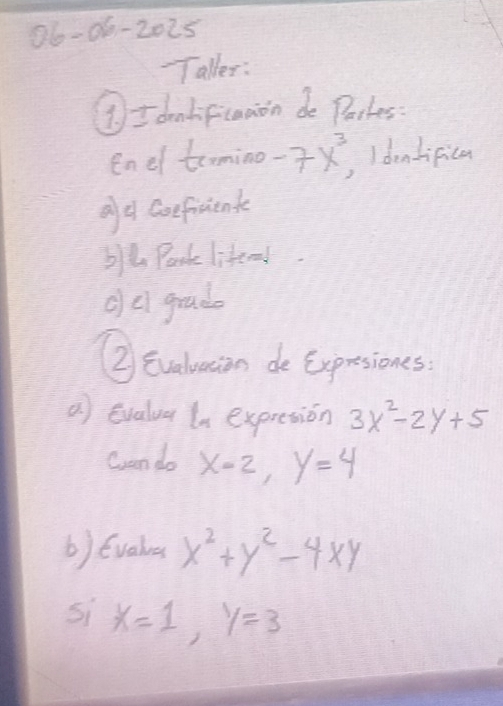 06-06-2025
Taller:
1. Identificación de Partes:
En el termino -7x³, Identifica
a) el Coeficiente
b) la Parte literal.
c) el grado
2 Evaluación de Expresiones:
a) Evaluar la expresión 3x²-2y+5
Cuando x=2, y=4
b) Evalua x²+y²-4xy
Si x=1, y=3